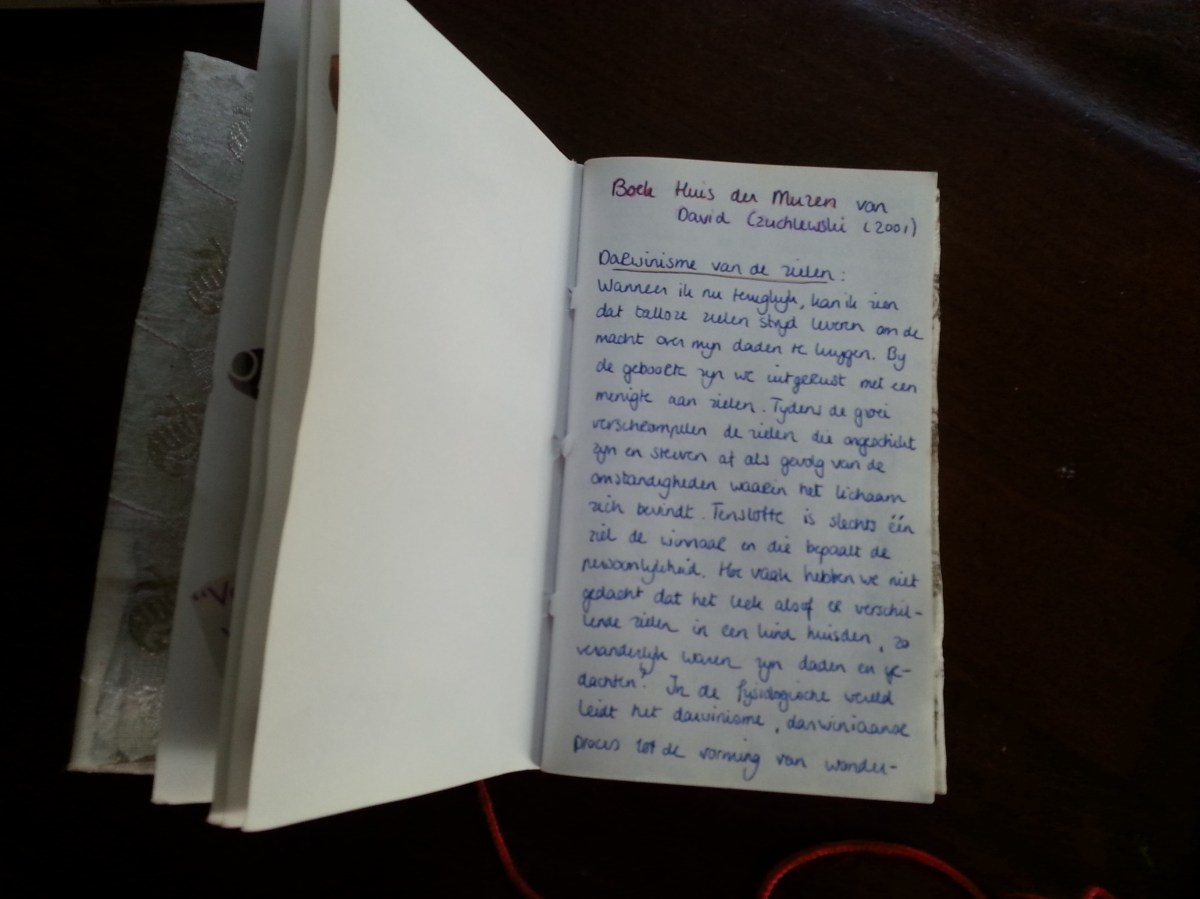 Boek Huis der Muzen van
David Czuchlewski (2001)
Darwinisme van de zielen:
Wanneer ik nu terugkijk, kan ik zien
dat talloze zielen strijd leveren om de
macht over mijn daden te krijgen. Bij
de geboorte zijn we uitgerust met een
menigte aan zielen. Tijdens de groei
verschrompelen de zielen die ongeschikt
zijn en sterven af als gevolg van de
omstandigheden waarin het lichaam
zich bevindt. Tenslotte is slechts één
ziel de winnaar en die bepaalt de
persoonlijkheid. Hoe vaak hebben we niet
gedacht dat het leek alsof er verschil-
lende zielen in een kind huisden, zo
veranderlijk waren zijn daden en ge-
dachten? In de fysiologische wereld
leidt het darwinisme, darwiniaanse
proces tot de vorming van wonder-